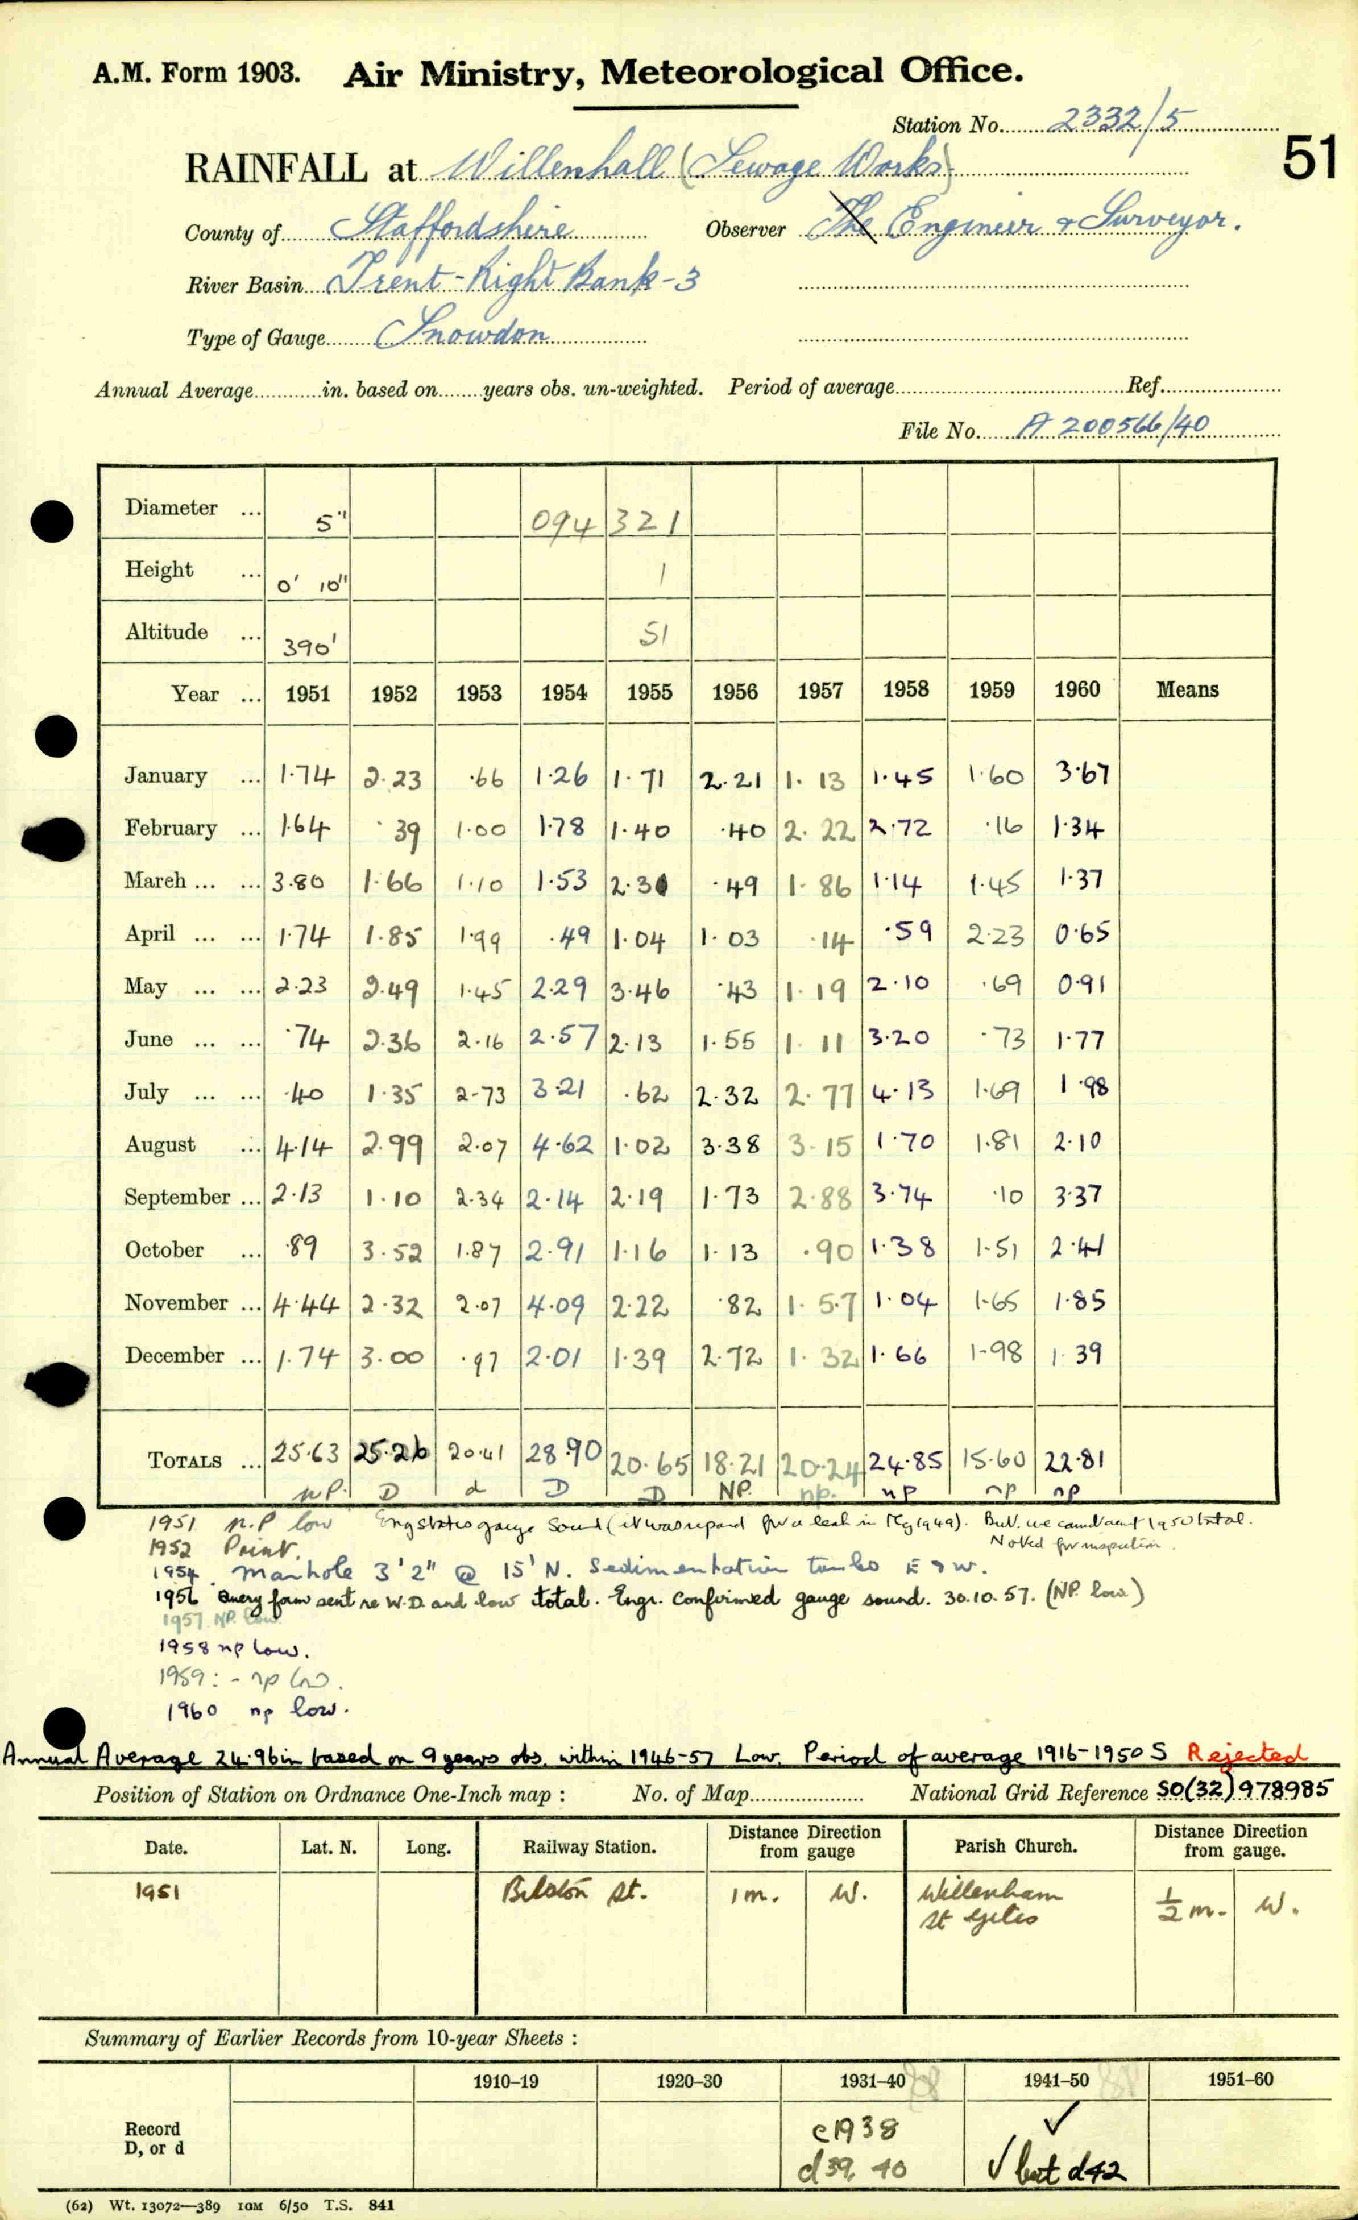 A.M. Form 1903. Air Ministry, Meteorological Office.
Station No. 2332/5
51
RAINFALL at Willenhall (Sewage Works)
County of Staffordshire Observer The Engineer & Surveyor.
River Basin Trent-Right Bank-3
Type of Gauge Snowdon
Annual Average in. based on years obs. un-weighted. Period of average Ref.
File No. A 200566/40
Diameter ... 5" 094 321
Height ... 0' 10" 1
Altitude ... 390' 51
Year ... 1951 1952 1953 1954 1955 1956 1957 1958 1959 1960 Means
January ... 1.74 2.23 .66 1.26 1.71 2.21 1.13 1.45 1.60 3.67
February ... 1.64 .39 1.00 1.78 1.40 .40 2.22 2.72 .16 1.34
March ... ... 3.80 1.66 1.10 1.53 2.31 .49 1.86 1.14 1.45 1.37
April ... ... 1.74 1.85 1.99 .49 1.04 1.03 .14 .59 2.23 0.65
May ... ... 2.23 2.49 1.45 2.29 3.46 .43 1.19 2.10 .69 0.91
June ... ... .74 2.36 2.16 2.57 2.13 1.55 1.11 3.20 .73 1.77
July ... ... .40 1.35 2.73 3.21 .62 2.32 2.77 4.13 1.69 1.98
August ... 4.14 2.99 2.07 4.62 1.02 3.38 3.15 1.70 1.81 2.10
September ... 2.13 1.10 2.34 2.14 2.19 1.73 2.88 3.74 .10 3.37
October ... .89 3.52 1.87 2.91 1.16 1.13 .90 1.38 1.51 2.41
November ... 4.44 2.32 2.07 4.09 2.22 .82 1.57 1.04 1.65 1.85
December ... 1.74 3.00 .97 2.01 1.39 2.72 1.32 1.66 1.98 1.39
TOTALS ... 25.63 25.26 20.41 28.90 20.65 18.21 20.24 24.85 15.60 22.81
n.P. D d D D NP. np. np np np
1951 n.P low Eng states gauge sound (it was repaired for a leak in 1949). But we can't accept 1950 total.
Noted for inspection.
1952 Print.
1954. Manhole 3'2" @ 15' N. Sedimentation tanks E & W.
1956 Query form sent re W.D. and low total. Engr. confirmed gauge sound. 30.10.57. (NP. low)
1957. NP. low.
1958 np low.
1959: - np low.
1960 np low.
Annual Average 24.96in based on 9 years obs. within 1946-57 Low. Period of average 1916-1950 S Rejected
Position of Station on Ordnance One-Inch map : No. of Map National Grid Reference SO(32)978985
Date. Lat. N. Long. Railway Station. Distance from gauge Direction Parish Church. Distance from gauge. Direction
1951 Bilston St. 1m. W. Willenham St Giles 1/2 m. W.
Summary of Earlier Records from 10-year Sheets :
1910–19 1920–30 1931–40 1941–50 1951–60
Record D, or d c1938 ✓
d39, 40 ✓ but d42
(62) Wt. 13072—389 10M 6/50 T.S. 841